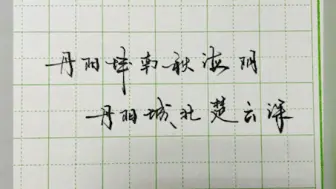 丹阳城南秋海阴
丹阳城北楚云深